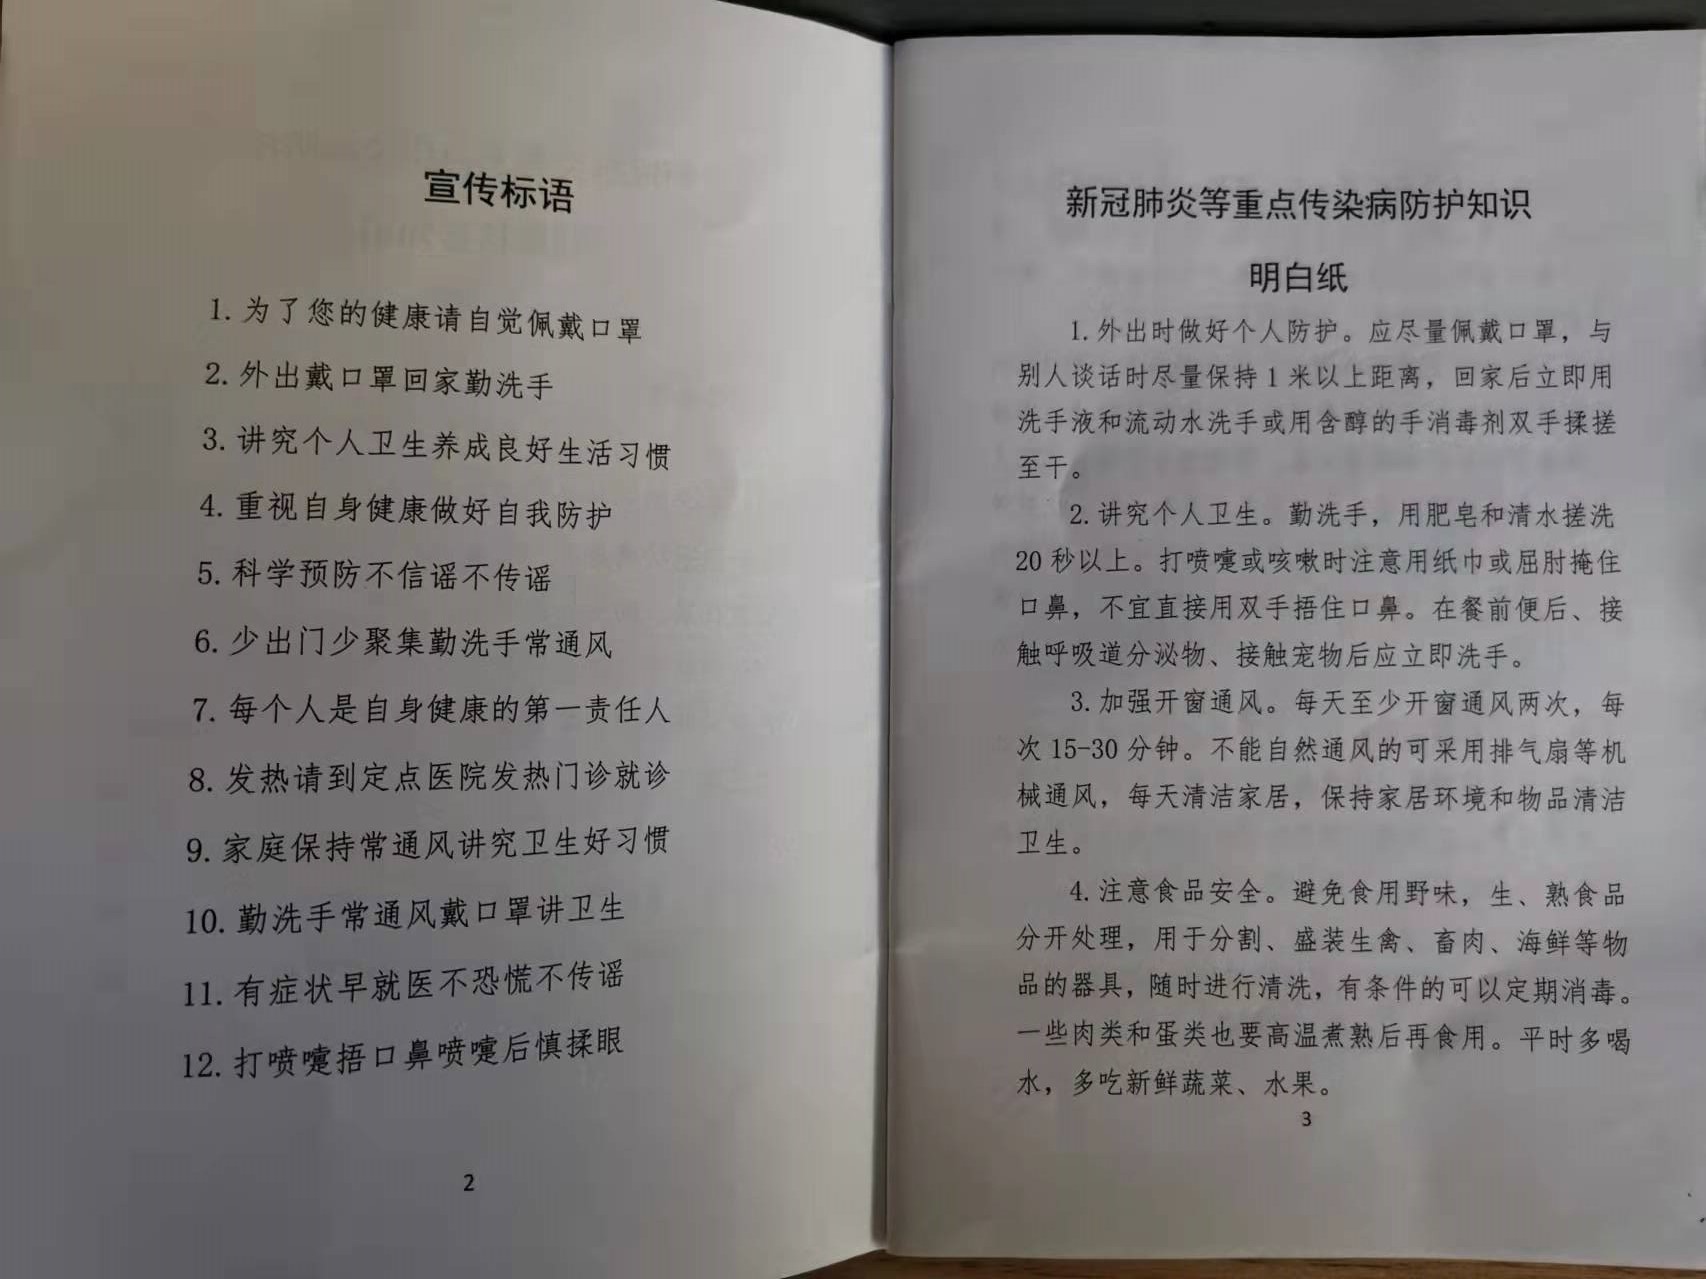 宣传标语
1. 为了您的健康请自觉佩戴口罩
2. 外出戴口罩回家勤洗手
3. 讲究个人卫生养成良好生活习惯
4. 重视自身健康做好自我防护
5. 科学预防不信谣不传谣
6. 少出门少聚集勤洗手常通风
7. 每个人是自身健康的第一责任人
8. 发热请到定点医院发热门诊就诊
9. 家庭保持常通风讲究卫生好习惯
10. 勤洗手常通风戴口罩讲卫生
11. 有症状早就医不恐慌不传谣
12. 打喷嚏捂口鼻喷嚏后慎揉眼
2
新冠肺炎等重点传染病防护知识
明白纸
1. 外出时做好个人防护。应尽量佩戴口罩，与
别人谈话时尽量保持 1 米以上距离，回家后立即用
洗手液和流动水洗手或用含醇的手消毒剂双手揉搓
至干。
2. 讲究个人卫生。勤洗手，用肥皂和清水搓洗
20 秒以上。打喷嚏或咳嗽时注意用纸巾或屈肘掩住
口鼻，不宜直接用双手捂住口鼻。在餐前便后、接
触呼吸道分泌物、接触宠物后应立即洗手。
3. 加强开窗通风。每天至少开窗通风两次，每
次 15-30 分钟。不能自然通风的可采用排气扇等机
械通风，每天清洁家居，保持家居环境和物品清洁
卫生。
4. 注意食品安全。避免食用野味，生、熟食品
分开处理，用于分割、盛装生禽、畜肉、海鲜等物
品的器具，随时进行清洗，有条件的可以定期消毒。
一些肉类和蛋类也要高温煮熟后再食用。平时多喝
水，多吃新鲜蔬菜、水果。
3